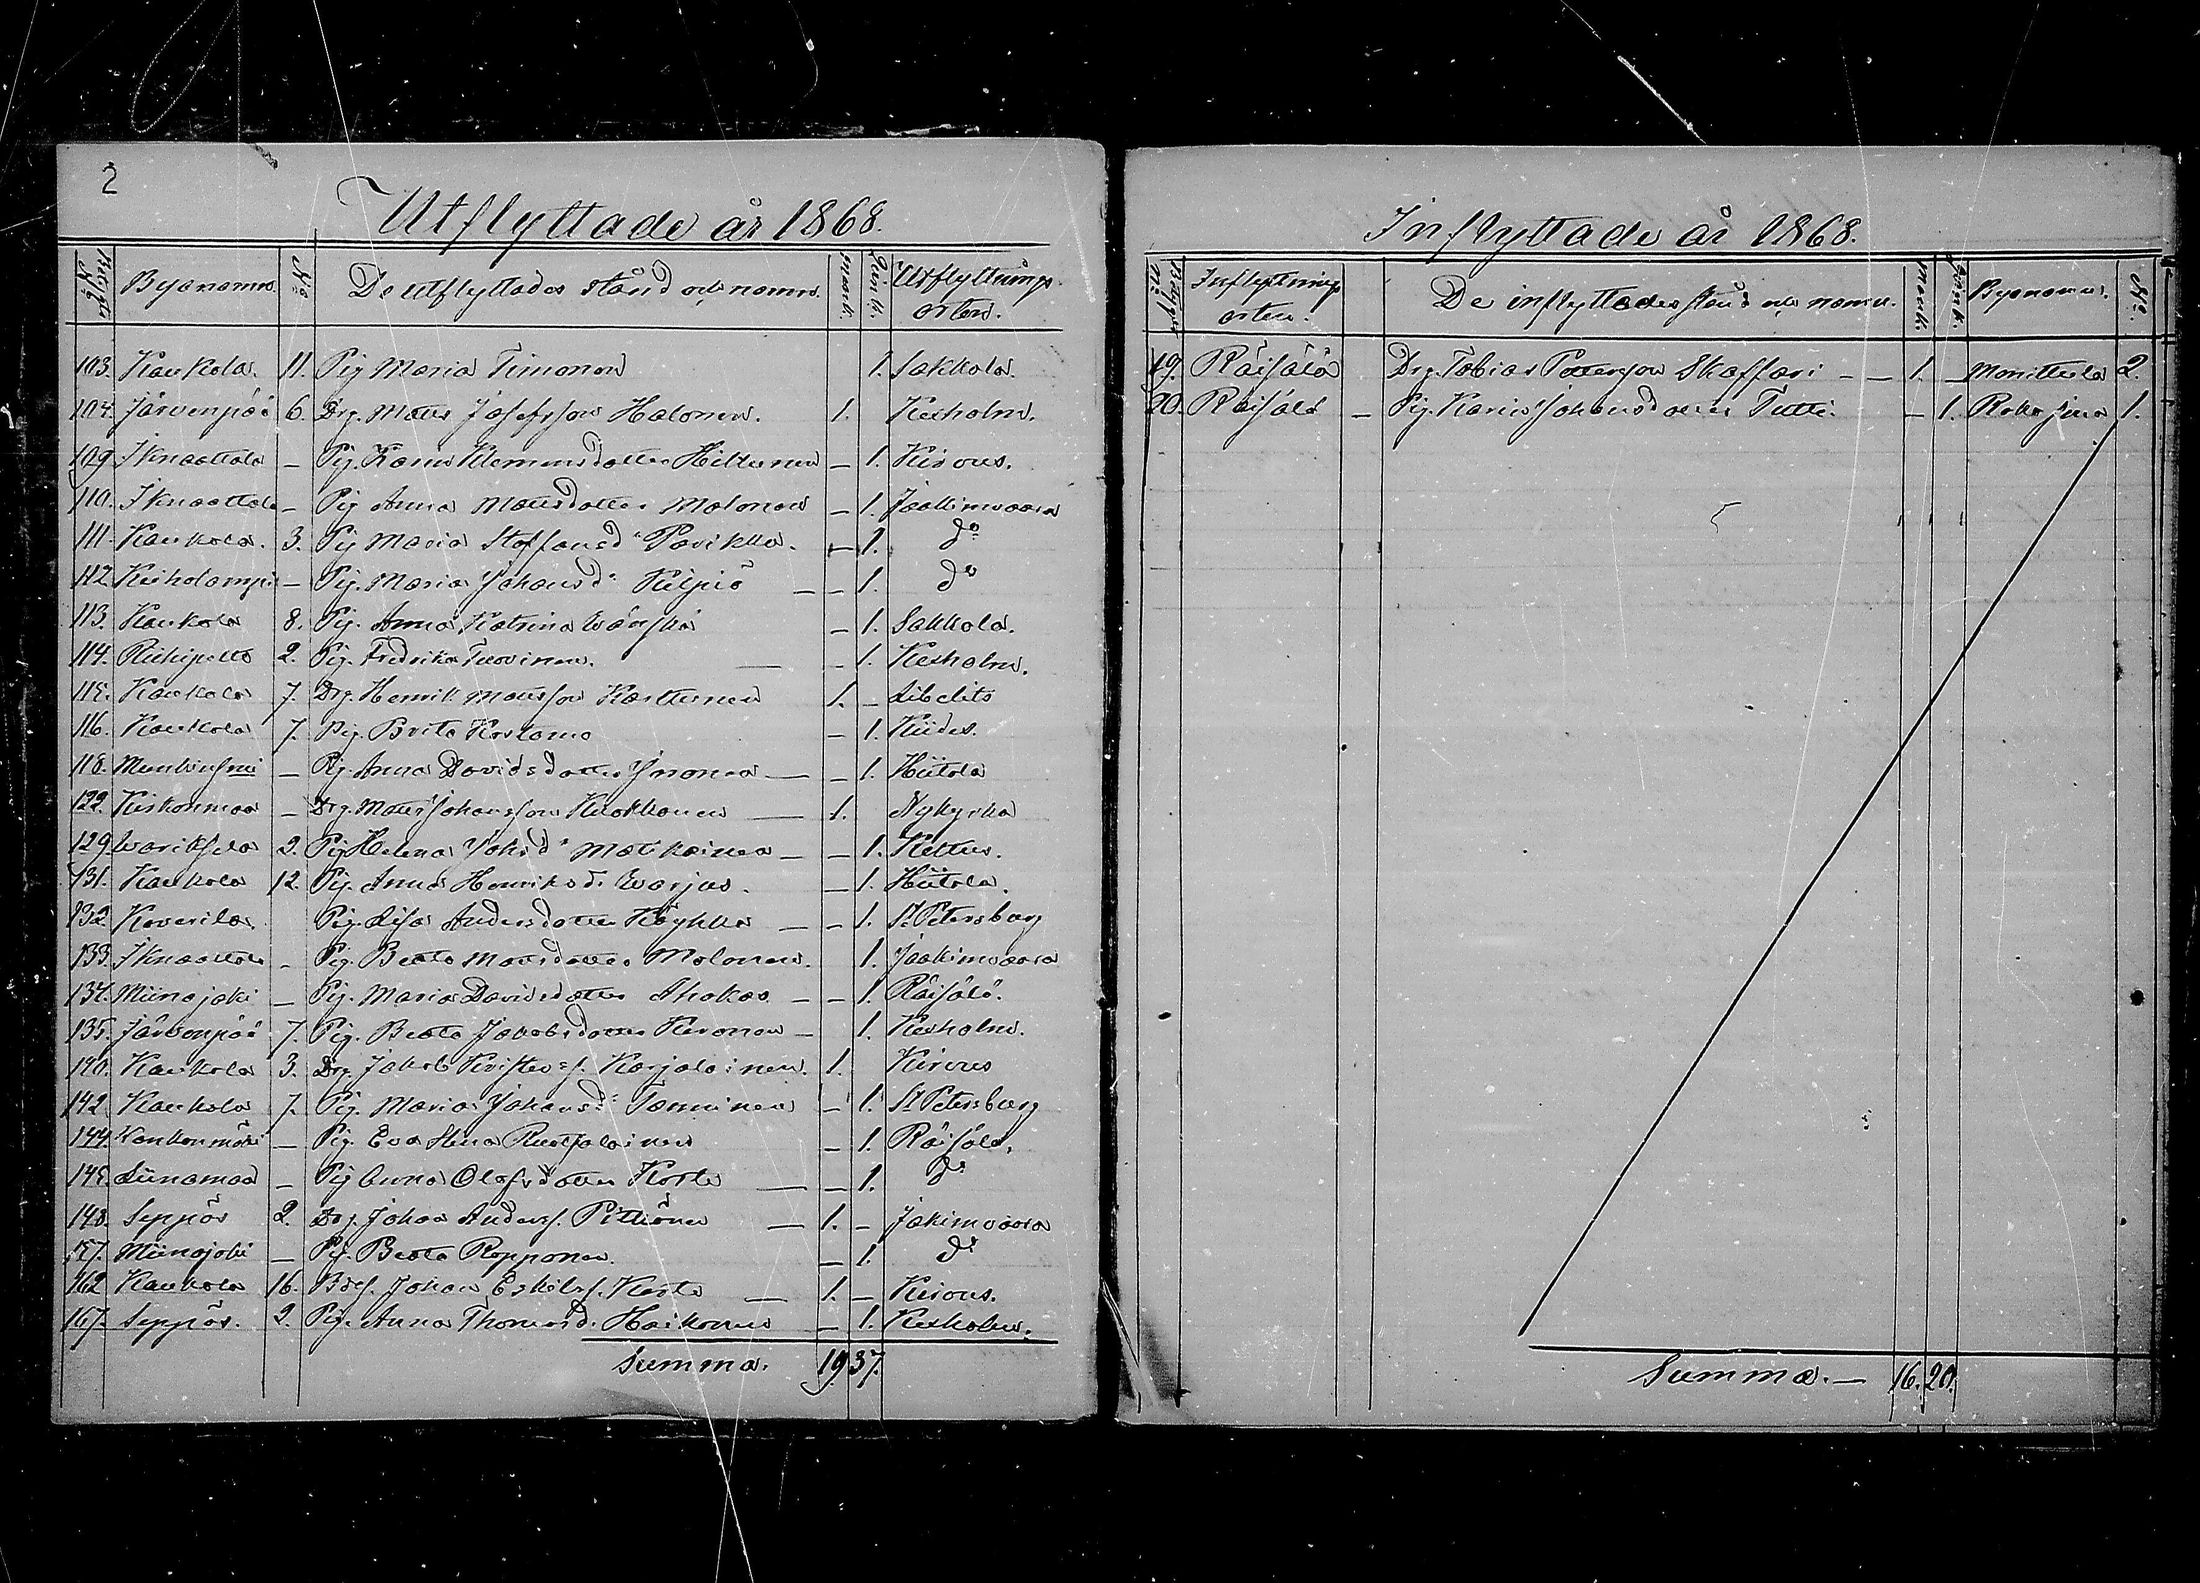 2
Utflyttade år 1868.
Betygets No Byanamn. No De utflyttades stånd och namn. mank. qvink. Utflyttnings orten.
103. Kaukola. 11. Pig Maria Timonen 1. Sakkola.
104. Järvenpää 6. Drg. Matts Josefsson Halonen. 1. Kexholm.
109. Iknaattala – Pig. Karin Klemensdotter Hiltunen – 1. Kirvus.
110. Iknaattala – Pig Anna Mattsdotter Molonen – 1. Jaakimvaara
111. Kaukola. 3. Pig Maria Staffansd:r Parikka. – 1. do
112. – Pig. Maria Johansd:r Kilpiö – – 1. do
113. Kaukola 8. Pig. Anna Katrina – 1. Sakkola.
114. Riihipelto 2. Pig. Fredrika Tuovinen. – – 1. Kexholm.
115. Kaukola 7. Drg. Henrik Mattsson Karttunen 1. – Libelits
116. Kaukola 7. Pig. Brita Kostamo – 1. Kides.
118. – Pig. Anna Davidsdotter Inonen – – 1. Hiitola
122. Kiiskonmaa – Drg. Matts Johansson Kuokkanen – 1. Nykyrka
129. Wariksela 2. Pig Helena Johsd:r Matikainen – – 1. Kettus.
131. Kaukola 12. Pig. Anna Henriksd:r Warjus. – 1. Hiitola.
132. Koverila. Pig. Lisa Andersdotter Köykkä – – 1. St Petersburg
133. Iknaattala – Pig. Beata Mattsdotter Molonen. 1. Jaakimvaara
134. Miinajoki – Pig. Maria Davidsdotter Ahokas – – 1. Räisälä.
135. Järvenpää 7. Pig. Beata Jakobsdotter Kuronen – 1. Kexholm.
140. Kaukola 3. Drg. Jakob Kristers. Karjalainen. 1. Kirvus
142 Kaukola 7. Pig. Maria Johansd:r Tanninen – 1. St Petersburg
144. Kankonmäki – Pig. Eva Stina – 1. Räisälä.
145. Liinamaa – Pig Anna Olofsdotter Koste – – 1. do
148. Seppäs 2. Drg. Johan Anders. – 1. – Jakimvaara
157. Miinajoki – Pig. Beata Ropponen. – 1. do
162 Kaukola 16. Johan Eskils. Koste – 1. – Kirvus.
167. Seppäs. 2. Pig. Anna Thomasd. Haikonen – 1. Kexholm.
Summa. 19 37.
Inflyttade år 1868.
Betygets No Inflyttnings orten. De inflyttades stånd och namn. Mank. Qvink. Byanamn. No.
19. Räisälä Drg. Tobias Pettersson Skaffari – – 1. – Monittula 2.
20. Räisälä – Pig. Karin Johansdotter Tutti. – 1. 1.
Summa. – 16. 20.